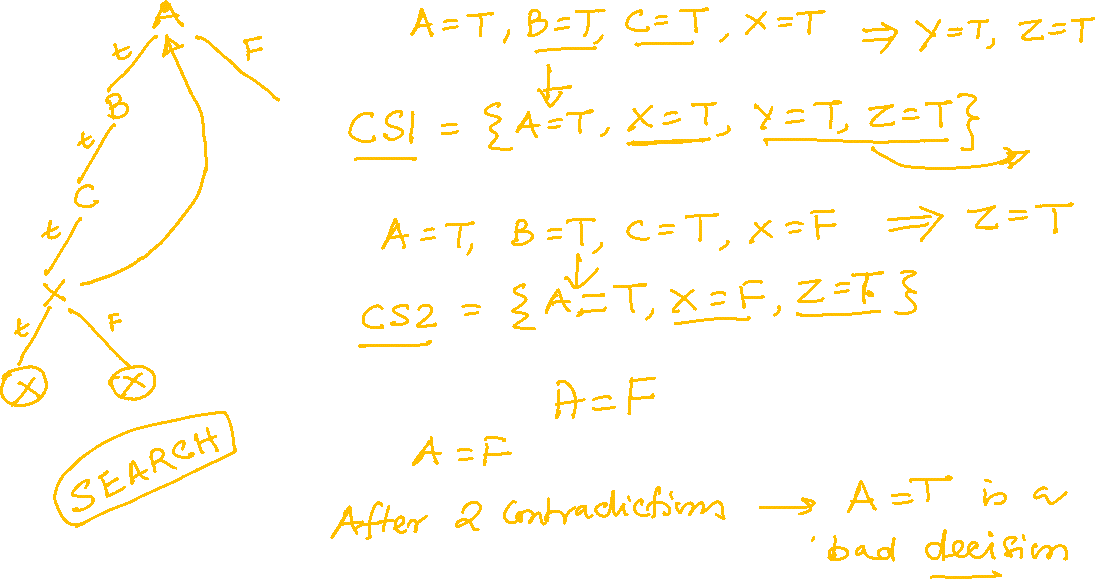 A
t
F
B
t
C
t
X
t
F
X
X
SEARCH
A=T, B=T, C=T, X=T ⇒ Y=T, Z=T
CS1 = {A=T, X=T, Y=T, Z=T}
A=T, B=T, C=T, X=F ⇒ Z=T
CS2 = {A=T, X=F, Z=T}
A=F
A=F
After 2 contradictions → A=T is a
bad decision